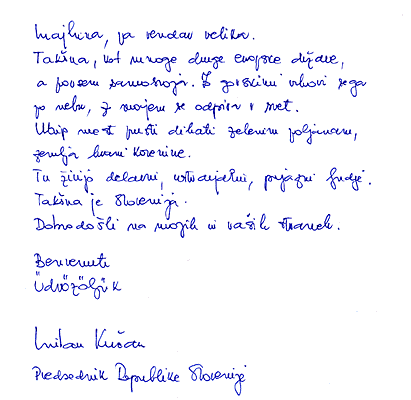 Majhna, pa vendar velika.
Takšna, kot mnoge druge evropske države,
a povsem samosvoja. Z gorskimi vrhovi sega
po nebu, z morjem se odpira v svet.
Utrip mest pusti dihati zelenim poljanam,
zemlja hrani korenine.
Tu živijo delavni, ustvarjalni, prijazni ljudje.
Takšna je Slovenija.
Dobrodošli na mojih in vaših straneh.
Benvenuti
Üdvözöljük
Milan Kučan
Predsednik Republike Slovenije